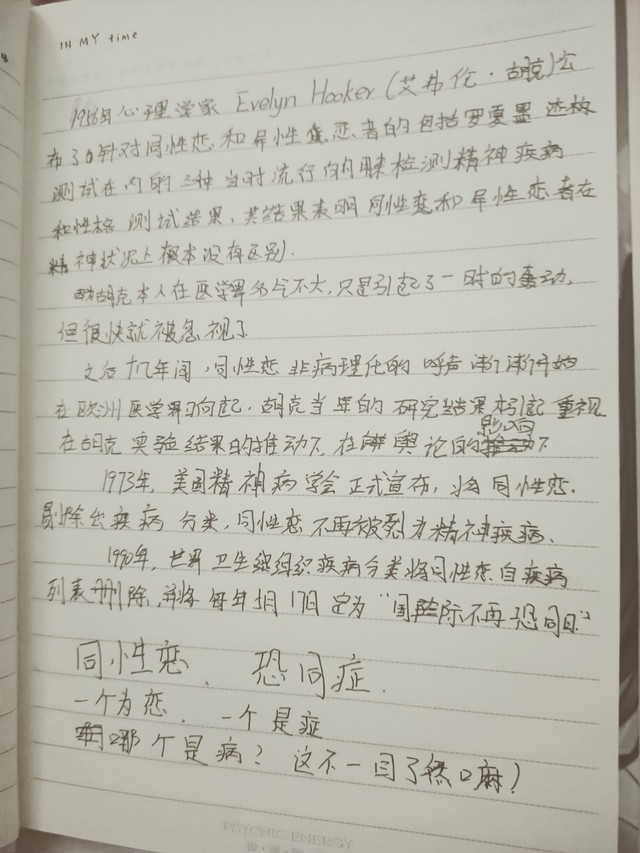 IN MY time
1956年心理学家 Evelyn Hooker (艾弗伦·胡克)公
布了的针对同性恋和异性恋者的包括罗夏墨迹
测试在内的三种当时流行的用来检测精神疾病
和性格测试结果,其结果表明同性恋和异性恋者在
精神状况上根本没有区别.
胡克本人在医学界名气不大,只是引起了一时的轰动,
但很快就被忽视了
之后十几年间,同性恋非病理化的呼声渐渐开始
在欧洲医学界响起,胡克当年的研究结果引起重视
在胡克实验结果的推动下,在舆论的影响下
1973年,美国精神病学会正式宣布,将同性恋
剔除出疾病分类,同性恋不再被列为精神疾病、
1990年,世界卫生组织疾病分类将同性恋自疾病
列表删除,并将每年5月17日定为“国际不再恐同日”
同性恋、恐同症.
一个为恋.一个是症
哪个是病?这不一目了然口麻!
PSYCHIC ENERGY